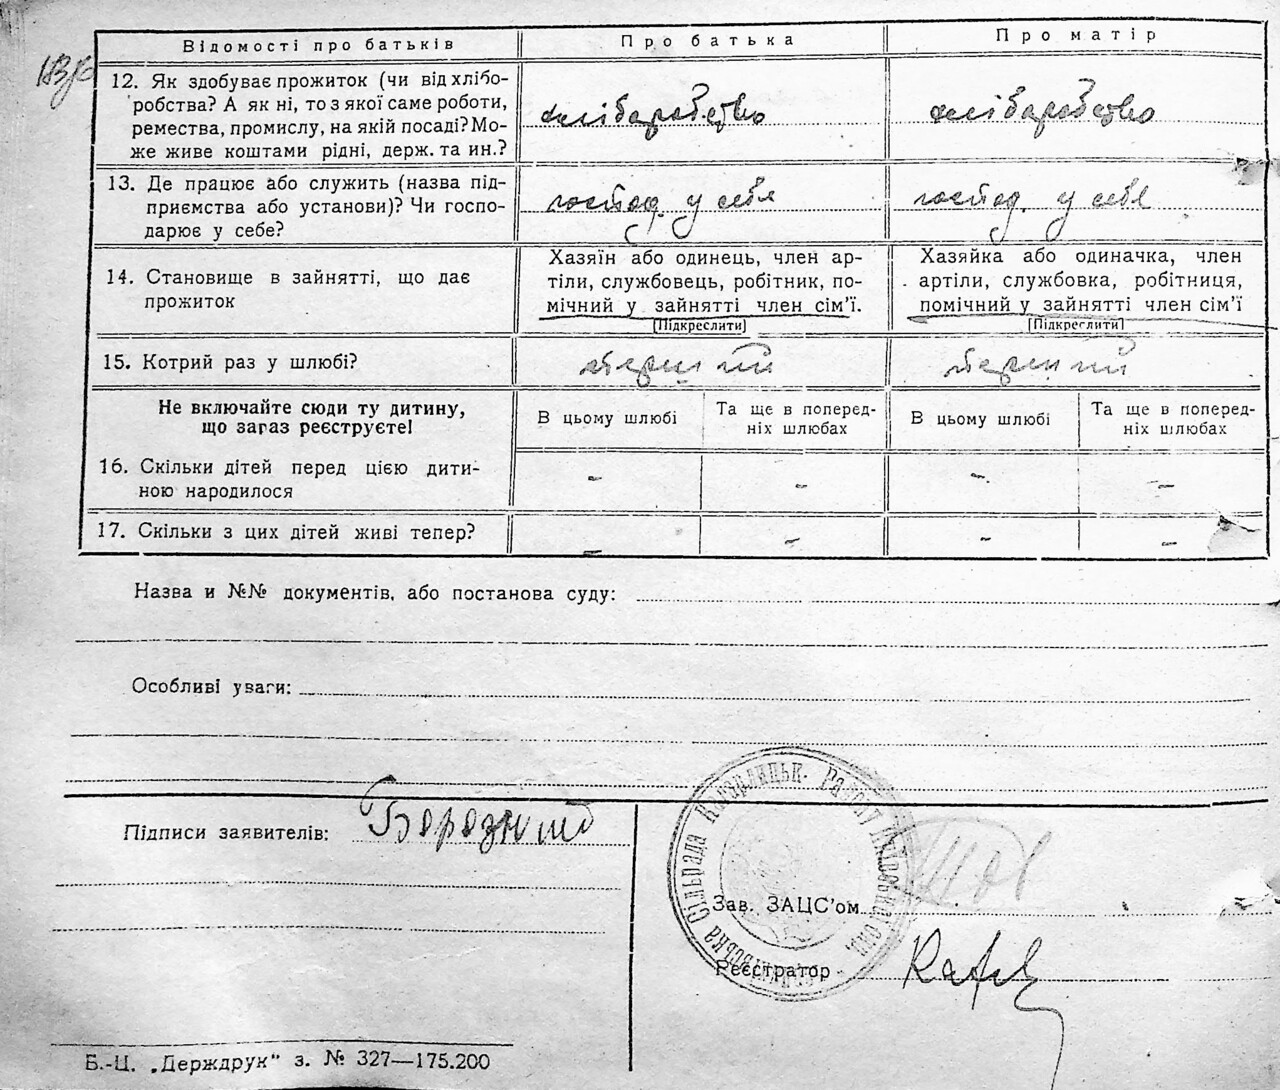 Відомості про батьків Про батька Про матір
12. Як здобуває прожиток (чи від хлібо-
робства? А як ні, то з якої саме роботи,
ремества, промислу, на якій посаді? Мо-
же живе коштами рідні, держ. та ин.?
хліборобство хліборобство
13. Де працює або служить (назва під-
приємства або установи)? Чи госпо-
дарює у себе?
господ. у себе господ. у себе
14. Становище в зайнятті, що дає
прожиток
Хазяїн або одинець, член ар-
тіли, службовець, робітник, по-
мічний у зайнятті член сім'ї.
[Підкреслити]
Хазяйка або одиначка, член
артіли, службовка, робітниця,
помічний у зайнятті член сім'ї
[Підкреслити]
15. Котрий раз у шлюбі? перший перший
Не включайте сюди ту дитину,
що загаз реєструєте!
В цьому шлюбі Та ще в поперед-
ніх шлюбах В цьому шлюбі Та ще в поперед-
ніх шлюбах
16. Скільки дітей перед цією дити-
ною народилося
- - - -
17. Скільки з цих дітей живі тепер?
- - - -
Назва и №№ документів, або постанова суду:
Особливі уваги:
Підписи заявителів:
Сільрада Кагарлицьк. Району Київської
Зав. ЗАЦС'ом
Реєстратор
Б.-Ц. „Держдрук" з. № 327—175.200